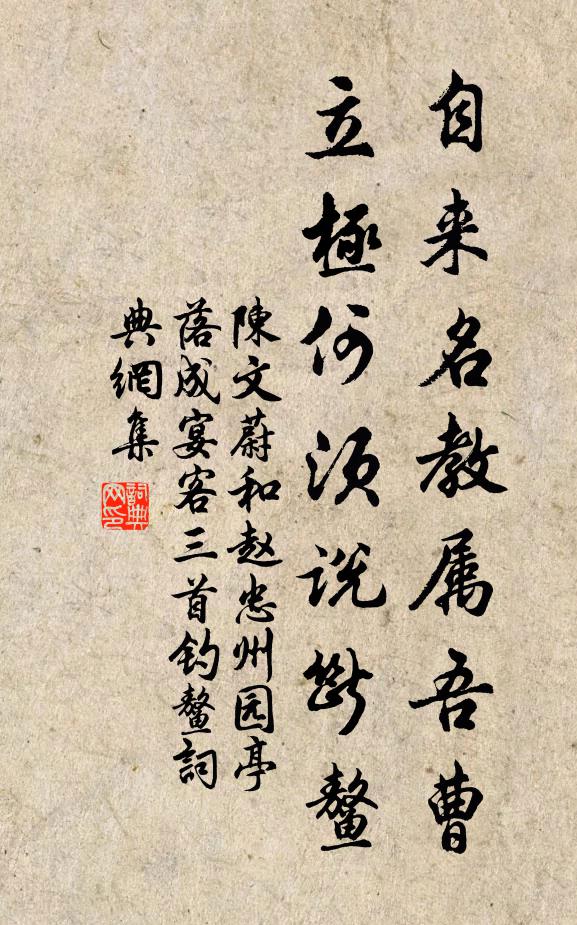 自来名教属吾曹
立極何須説斷鳌
陳文蔚和赵忠州园亭
落成宴客三首钓鳌詞
典網集
詞典網印